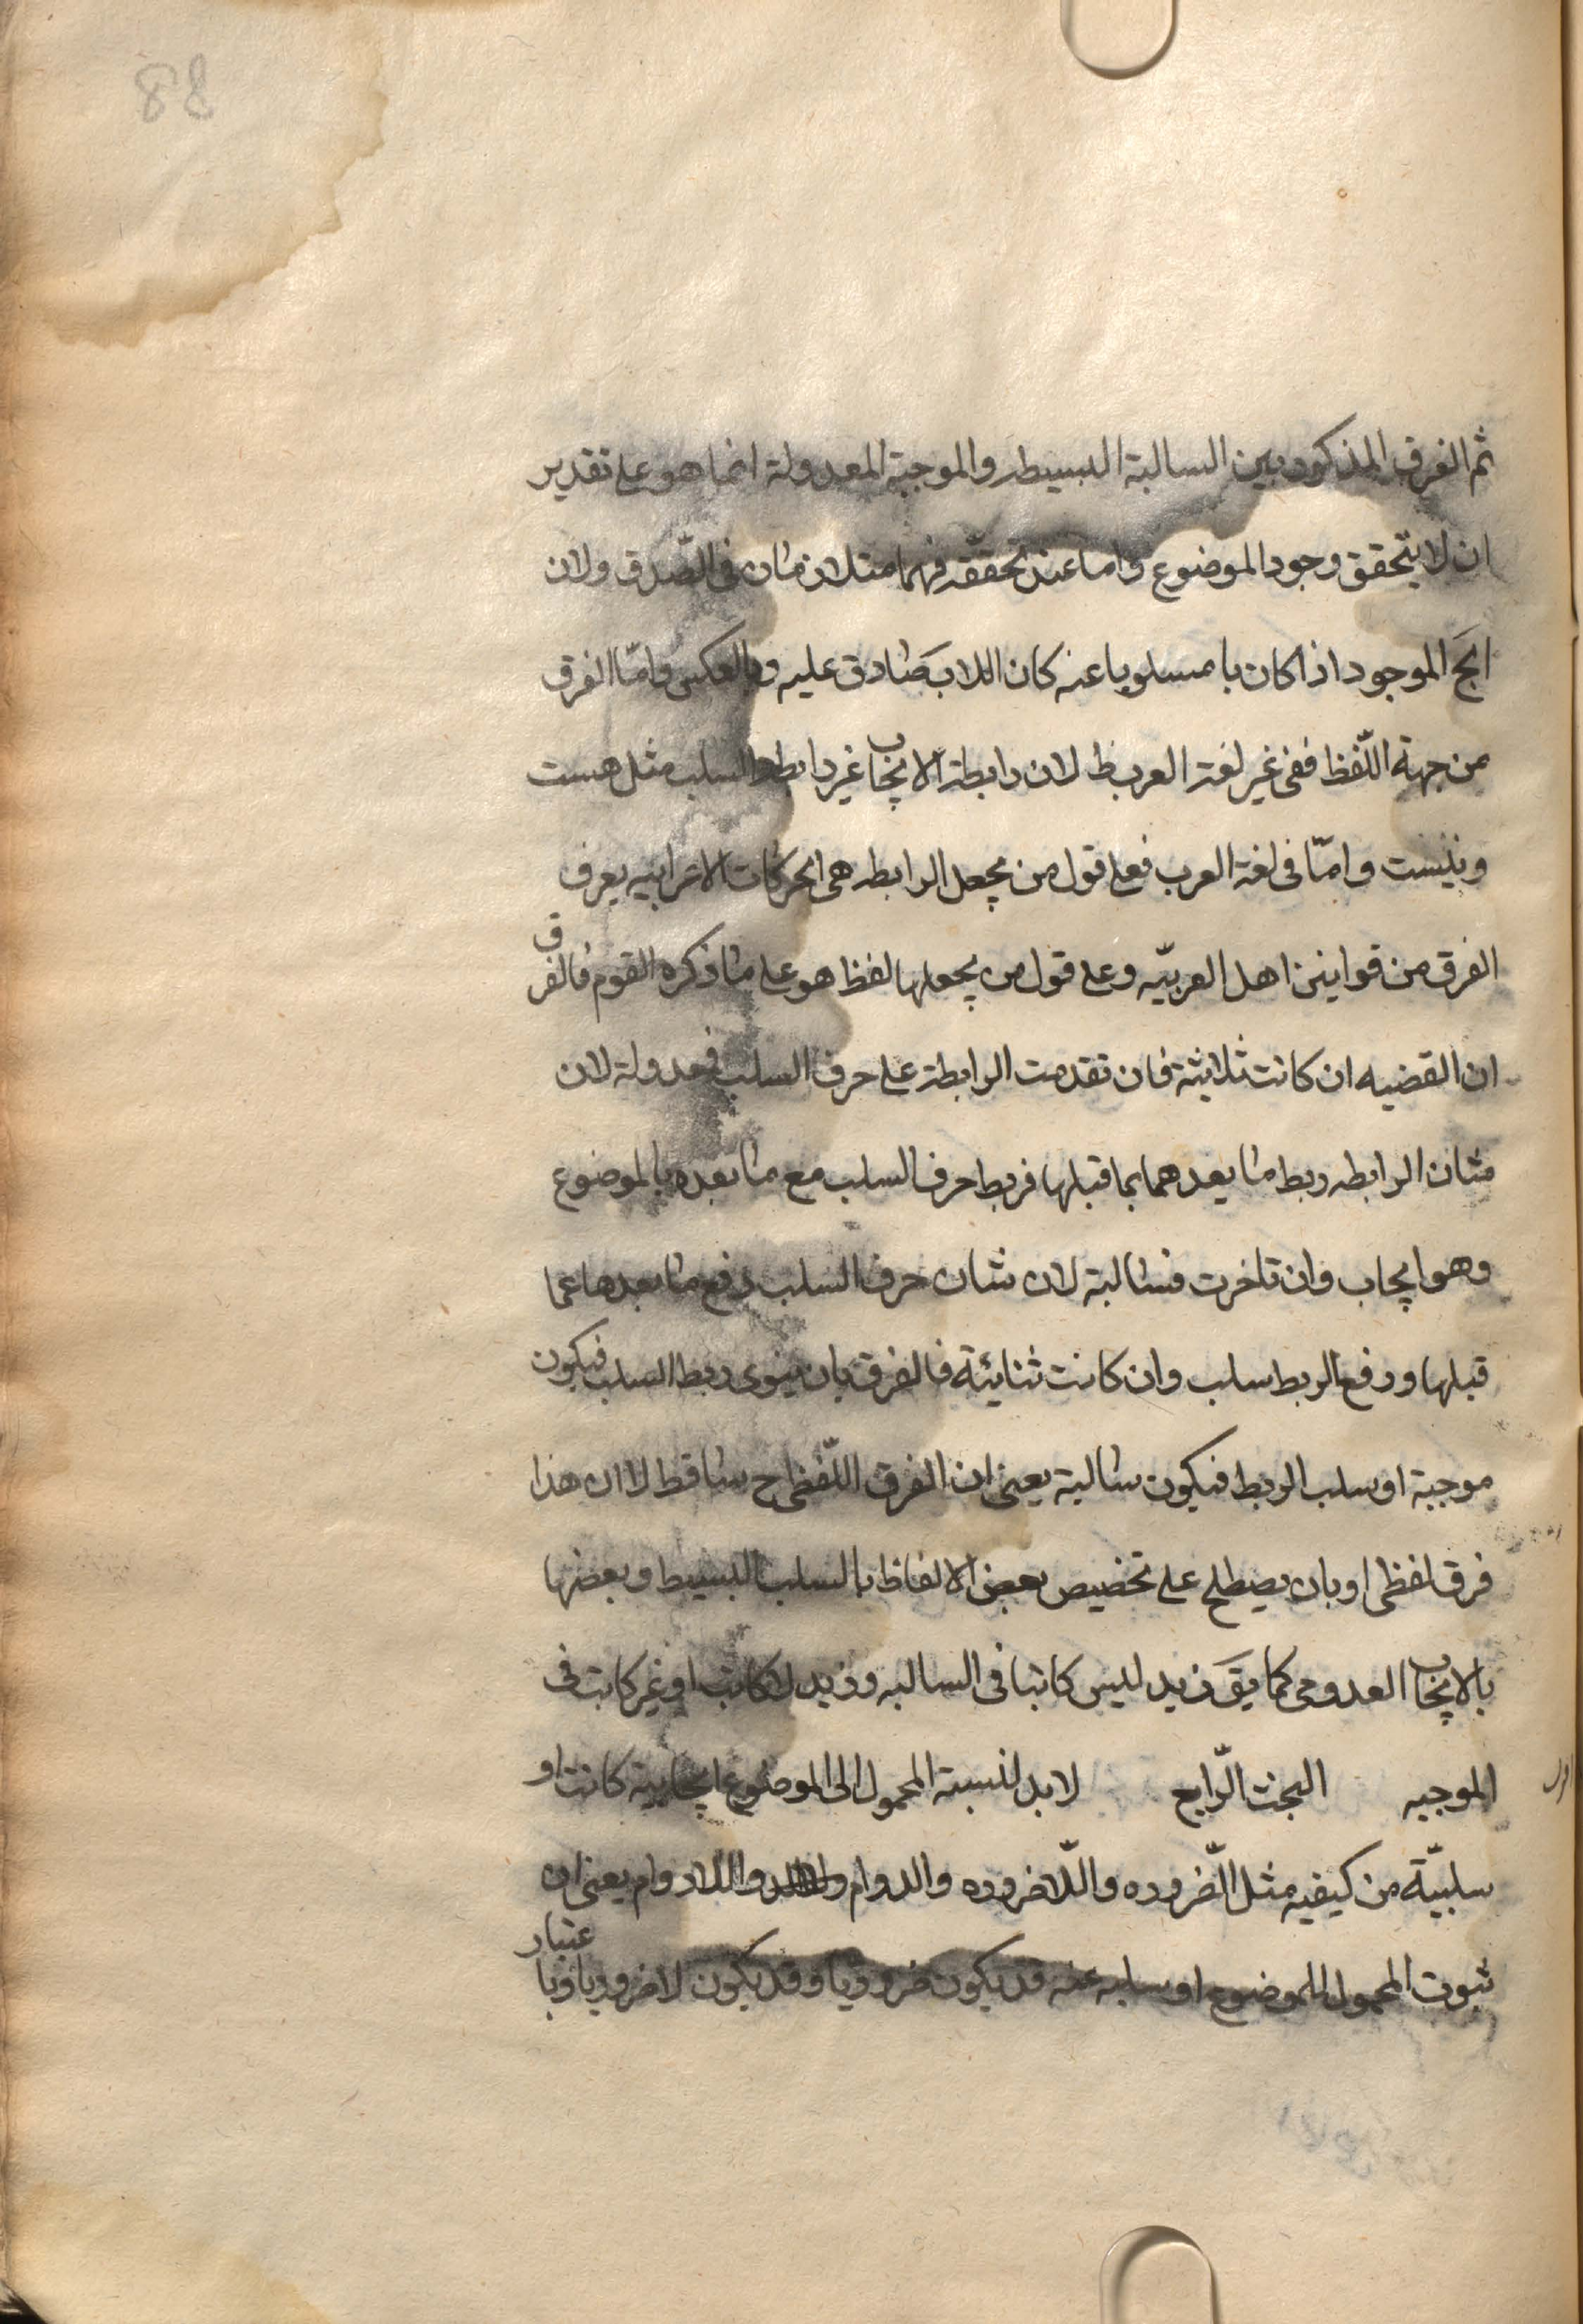 88
ثم الفرق المذكور بين السالبة البسيطه والموجبة المعدولة انما هو على تقدير
ان لا يتحقق وجود الموضوع واما عند تحققه فهما متلازمان فى الصّدق ولان
الموجود اذا كان با مسلوبا عنه كان اللاب صادق عليه وبالعكس وامّا الفرق
من جهة اللّفظ ففى غير لغة العرب ظ لان رابطة الايجاب غير رابطة السلب مثل هست
ونيست وامّا فى لغة العرب فعلى قول من يجعل الرابطه هى الحركات الاعرابيه يعرف
الفرق من قوانين اهل العربيّه وعلى قول من يجعلها لفظ هو على ما ذكره القوم فالفرق
ان القضيه ان كانت ثلاثية فان تقدمت الرابطة على حرف السلب فمعدولة لان
شان الرابطه ربط ما بعدهما بما قبلها فربط حرف السلب مع ما بعده بالموضوع
وهو ايجاب وان تاخرت فسالبة لان شان حرف السلب رفع ما بعدها عما
قبلها ورفع الربط سلب وان كانت ثنائية فالفرق بان ينوى ربط السلب فيكون
موجبة او سلب الربط فيكون سالبة يعنى ان الفرق اللّفظى ح ساقط لا ان هذا
فرق لفظى او بان يصطلح على تخصيص بعض الالفاظ بالسلب البسيط وبعضها
بالايجاب العدومى كما يق زيد ليس كاتبا فى السالبه وزيد لا كاتب او غير كاتب فى
الموجبه البحث الرّابع لا بد لنسبة المحمول الى الموضوع ايجابية كانت او
سلبيّة من كيفيه مثل الضّروره واللّاضروره والدوام واللادوام يعنى ان
ثبوت المحمول للموضوع او سلبه عنه قد يكون ضروريا وقد يكون لا ضروريا وباعتبار